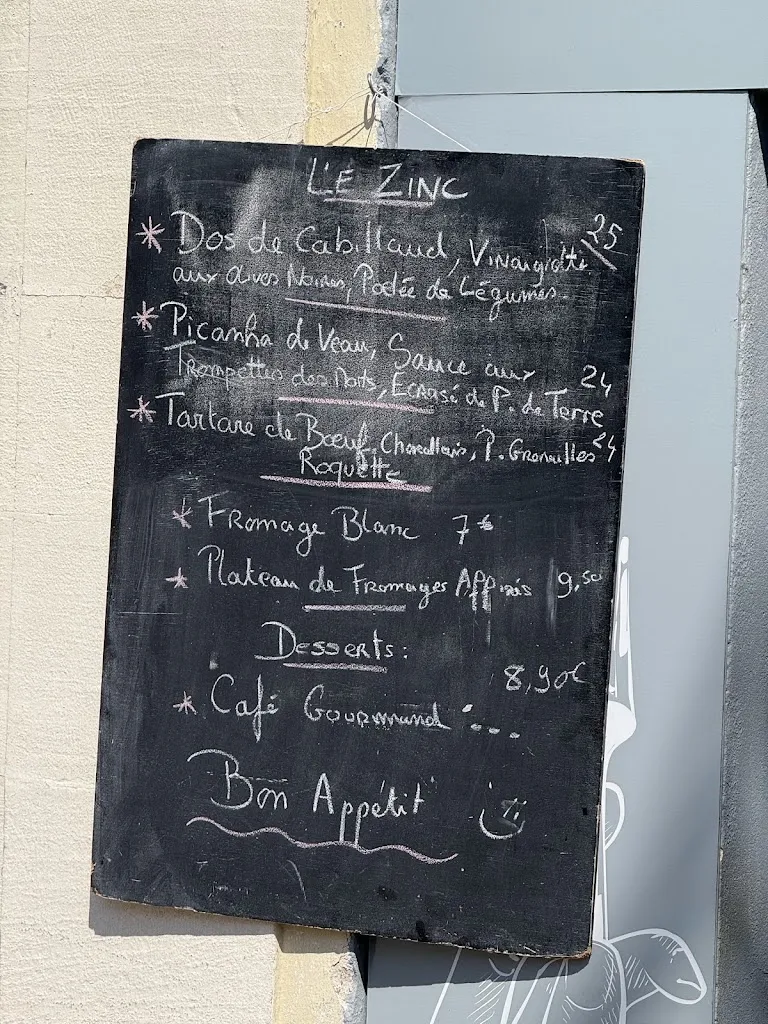 LE ZINC
* Dos de Cabillaud, Vinaigrette 25
aux olives Noires, Poêlée de Légumes.
* Picanha de Veau, Sauce aux
Trompettes des Morts, Ecrasé de P. de Terre 24
* Tartare de Bœuf, Charollais, P. Grenailles 24
Roquette
* Fromage Blanc 7€
* Plateau de Fromages Affinés 9,50
Desserts:
8,90€
* Café Gourmand ...
Bon Appétit